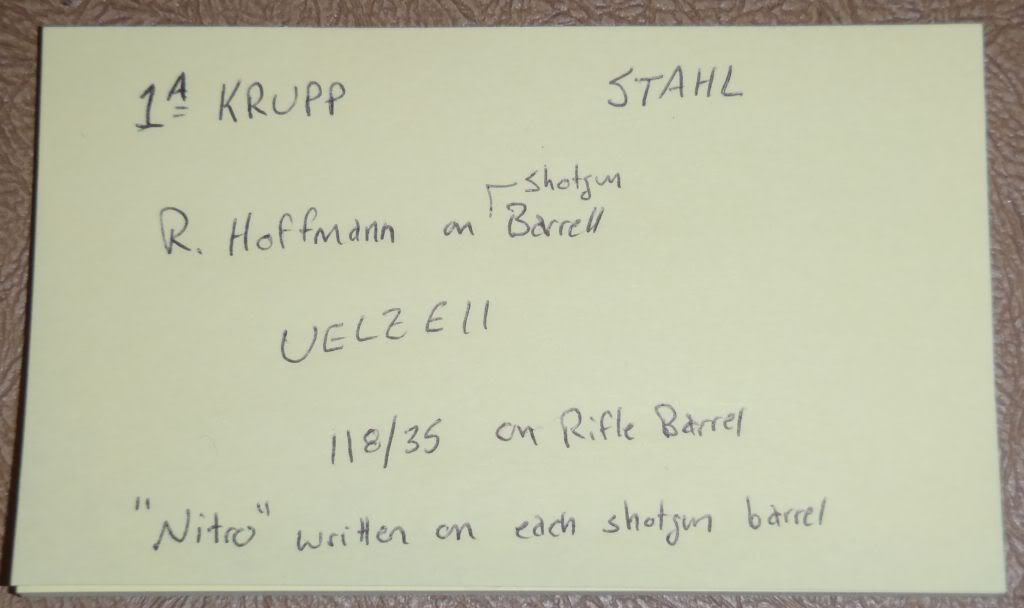 1A KRUPP STAHL
shotgun
R. Hoffmann on Barrell
UELZEll
118/35 on Rifle Barrel
"Nitro" written on each shotgun barrel